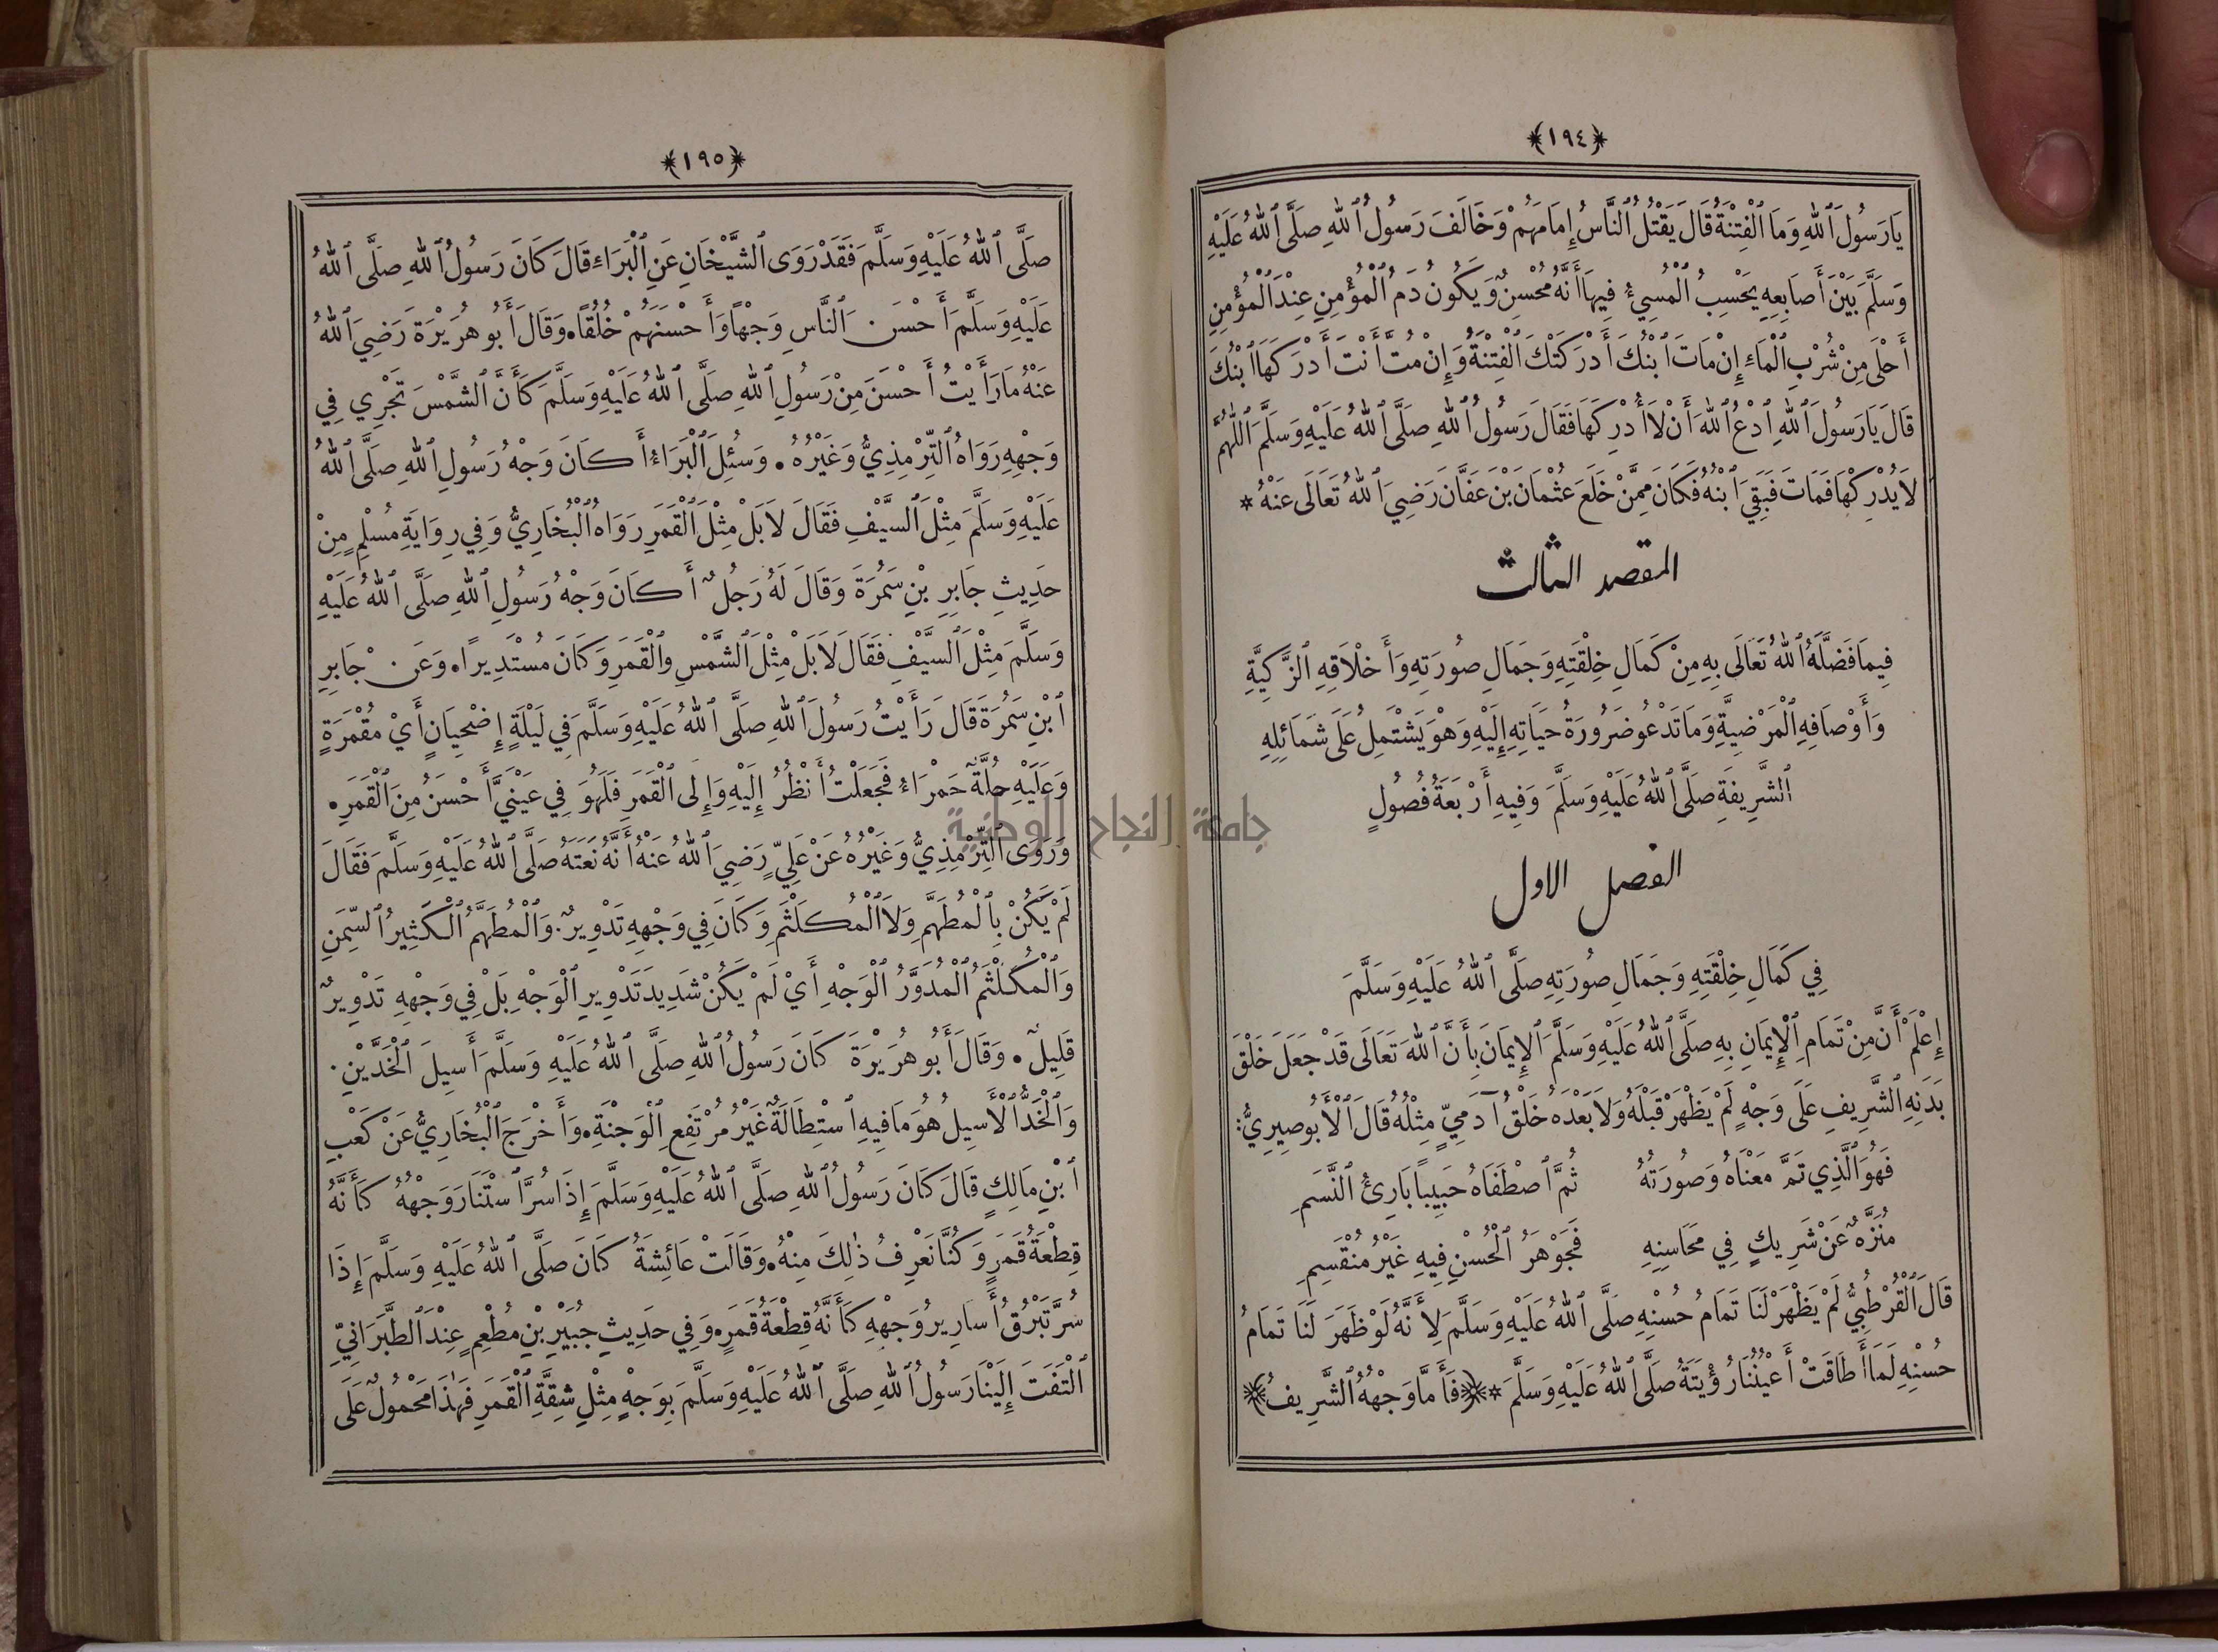 ﴿١٩٤﴾
يَارَسُولَ ٱللهِ وَمَا ٱلْفِتْنَةُ قَالَ يَقْتُلُ ٱلنَّاسُ إِمَامَهُمْ وَخَالَفَ رَسُولُ ٱللهِ صَلَّى ٱللهُ عَلَيْهِ
وَسَلَّمَ بَيْنَ أَصَابِعِهِ يَحْسِبُ ٱلْمُسِيءُ فِيهَا أَنَّهُ مُحْسِنٌ وَيَكُونُ دَمُ ٱلْمُؤْمِنِ عِنْدَ ٱلْمُؤْمِنِ
أَحْلَى مِنْ شُرْبِ ٱلْمَاءِ إِنْ مَاتَ ٱبْنُكَ أَدْرَكَتْكَ ٱلْفِتْنَةُ وَإِنْ مُتَّ أَنْتَ أَدْرَكَهَا ٱبْنُكَ
قَالَ يَارَسُولَ ٱللهِ ٱدْعُ ٱللهَ أَنْ لَا أُدْرِكَهَا فَقَالَ رَسُولُ ٱللهِ صَلَّى ٱللهُ عَلَيْهِ وَسَلَّمَ اللّٰهُمَّ
لَا يُدْرِكْهَا فَمَاتَ فَبَقِيَ ٱبْنُهُ فَكَانَ مِمَّنْ خَلَعَ عُثْمَانَ بْنَ عَفَّانَ رَضِيَ ٱللهُ تَعَالَى عَنْهُ *
المقصد الثالث
فِيمَا فَضَّلَهُ ٱللهُ تَعَالَى بِهِ مِنْ كَمَالِ خِلْقَتِهِ وَجَمَالِ صُورَتِهِ وَأَخْلَاقِهِ ٱلزَّكِيَّةِ
وَأَوْصَافِهِ ٱلْمَرْضِيَّةِ وَمَا تَدْعُو ضَرُورَةُ حَيَاتِهِ إِلَيْهِ وَهْوَ يَشْتَمِلُ عَلَى شَمَائِلِهِ
ٱلشَّرِيفَةِ صَلَّى ٱللهُ عَلَيْهِ وَسَلَّمَ وَفِيهِ أَرْبَعَةُ فُصُولٍ
الفصل الاول
فِي كَمَالِ خِلْقَتِهِ وَجَمَالِ صُورَتِهِ صَلَّى ٱللهُ عَلَيْهِ وَسَلَّمَ
إِعْلَمْ أَنَّ مِنْ تَمَامِ ٱلْإِيمَانِ بِهِ صَلَّى ٱللهُ عَلَيْهِ وَسَلَّمَ ٱلْإِيمَانَ بِأَنَّ ٱللهَ تَعَالَى قَدْ جَعَلَ خَلْقَ
بَدَنِهِ ٱلشَّرِيفِ عَلَى وَجْهٍ لَمْ يَظْهَرْ قَبْلَهُ وَلَا بَعْدَهُ خَلْقُ آدَمِيٍّ مِثْلُهُ قَالَ ٱلْأَبُوصِيرِيُّ:
فَهْوَ ٱلَّذِي تَمَّ مَعْنَاهُ وَصُورَتُهُ ثُمَّ ٱصْطَفَاهُ حَبِيبًا بَارِئُ ٱلنَّسَمِ
مُنَزَّهٌ عَنْ شَرِيكٍ فِي مَحَاسِنِهِ فَجَوْهَرُ ٱلْحُسْنِ فِيهِ غَيْرُ مُنْقَسِمِ
قَالَ ٱلْقُرْطُبِيُّ لَمْ يَظْهَرْ لَنَا تَمَامُ حُسْنِهِ صَلَّى ٱللهُ عَلَيْهِ وَسَلَّمَ لِأَنَّهُ لَوْ ظَهَرَ لَنَا تَمَامُ
حُسْنِهِ لَمَا أَطَاقَتْ أَعْيُنُنَا رُؤْيَتَهُ صَلَّى ٱللهُ عَلَيْهِ وَسَلَّمَ * ﴿فَأَمَّا وَجْهُهُ ٱلشَّرِيفُ﴾
﴿١٩٥﴾
صَلَّى ٱللهُ عَلَيْهِ وَسَلَّمَ فَقَدْ رَوَى ٱلشَّيْخَانِ عَنِ ٱلْبَرَاءِ قَالَ كَانَ رَسُولُ ٱللهِ صَلَّى ٱللهُ
عَلَيْهِ وَسَلَّمَ أَحْسَنَ ٱلنَّاسِ وَجْهًا وَأَحْسَنَهُمْ خُلُقًا. وَقَالَ أَبُو هُرَيْرَةَ رَضِيَ ٱللهُ
عَنْهُ مَا رَأَيْتُ أَحْسَنَ مِنْ رَسُولِ ٱللهِ صَلَّى ٱللهُ عَلَيْهِ وَسَلَّمَ كَأَنَّ ٱلشَّمْسَ تَجْرِي فِي
وَجْهِهِ رَوَاهُ ٱلتِّرْمِذِيُّ وَغَيْرُهُ. وَسُئِلَ ٱلْبَرَاءُ أَكَانَ وَجْهُ رَسُولِ ٱللهِ صَلَّى ٱللهُ
عَلَيْهِ وَسَلَّمَ مِثْلَ ٱلسَّيْفِ فَقَالَ لَا بَلْ مِثْلَ ٱلْقَمَرِ رَوَاهُ ٱلْبُخَارِيُّ وَفِي رِوَايَةِ مُسْلِمٍ مِنْ
حَدِيثِ جَابِرِ بْنِ سَمُرَةَ وَقَالَ لَهُ رَجُلٌ أَكَانَ وَجْهُ رَسُولِ ٱللهِ صَلَّى ٱللهُ عَلَيْهِ
وَسَلَّمَ مِثْلَ ٱلسَّيْفِ فَقَالَ لَا بَلْ مِثْلَ ٱلشَّمْسِ وٱلْقَمَرِ وَكَانَ مُسْتَدِيرًا. وَعَنْ جَابِرِ
ٱبْنِ سَمُرَةَ قَالَ رَأَيْتُ رَسُولَ ٱللهِ صَلَّى ٱللهُ عَلَيْهِ وَسَلَّمَ فِي لَيْلَةٍ إِضْحِيَانٍ أَيْ مُقْمِرَةٍ
وَعَلَيْهِ حُلَّةٌ حَمْرَاءُ فَجَعَلْتُ أَنْظُرُ إِلَيْهِ وَإِلَى ٱلْقَمَرِ فَلَهُوَ فِي عَيْنَيَّ أَحْسَنُ مِنَ ٱلْقَمَرِ.
وَرَوَى ٱلتِّرْمِذِيُّ وَغَيْرُهُ عَنْ عَلِيٍّ رَضِيَ ٱللهُ عَنْهُ أَنَّهُ نَعَتَهُ صَلَّى ٱللهُ عَلَيْهِ وَسَلَّمَ فَقَالَ
لَمْ يَكُنْ بِٱلْمُطَهَّمِ وَلَا ٱلْمُكَلْثَمِ وَكَانَ فِي وَجْهِهِ تَدْوِيرٌ. وَٱلْمُطَهَّمُ ٱلْكَثِيرُ ٱلسِّمَنِ
وَٱلْمُكَلْثَمُ ٱلْمُدَوَّرُ ٱلْوَجْهِ أَيْ لَمْ يَكُنْ شَدِيدَ تَدْوِيرِ ٱلْوَجْهِ بَلْ فِي وَجْهِهِ تَدْوِيرٌ
قَلِيلٌ. وَقَالَ أَبُو هُرَيْرَةَ كَانَ رَسُولُ ٱللهِ صَلَّى ٱللهُ عَلَيْهِ وَسَلَّمَ أَسِيلَ ٱلْخَدَّيْنِ.
وَٱلْخَدُّ ٱلْأَسِيلُ هُوَ مَا فِيهِ ٱسْتِطَالَةٌ غَيْرُ مُرْتَفِعِ ٱلْوَجْنَةِ. وَأَخْرَجَ ٱلْبُخَارِيُّ عَنْ كَعْبِ
ٱبْنِ مَالِكٍ قَالَ كَانَ رَسُولُ ٱللهِ صَلَّى ٱللهُ عَلَيْهِ وَسَلَّمَ إِذَا سُرَّ ٱسْتَنَارَ وَجْهُهُ كَأَنَّهُ
قِطْعَةُ قَمَرٍ وَكُنَّا نَعْرِفُ ذٰلِكَ مِنْهُ. وَقَالَتْ عَائِشَةُ كَانَ صَلَّى ٱللهُ عَلَيْهِ وَسَلَّمَ إِذَا
سُرَّ تَبْرُقُ أَسَارِيرُ وَجْهِهِ كَأَنَّهُ قِطْعَةُ قَمَرٍ. وَفِي حَدِيثِ جُبَيْرِ بْنِ مُطْعِمٍ عِنْدَ ٱلطَّبَرَانِيِّ
ٱلْتَفَتَ إِلَيْنَا رَسُولُ ٱللهِ صَلَّى ٱللهُ عَلَيْهِ وَسَلَّمَ بِوَجْهٍ مِثْلِ شِقَّةِ ٱلْقَمَرِ فَهٰذَا مَحْمُولٌ عَلَى
جامعة النجاح الوطنية